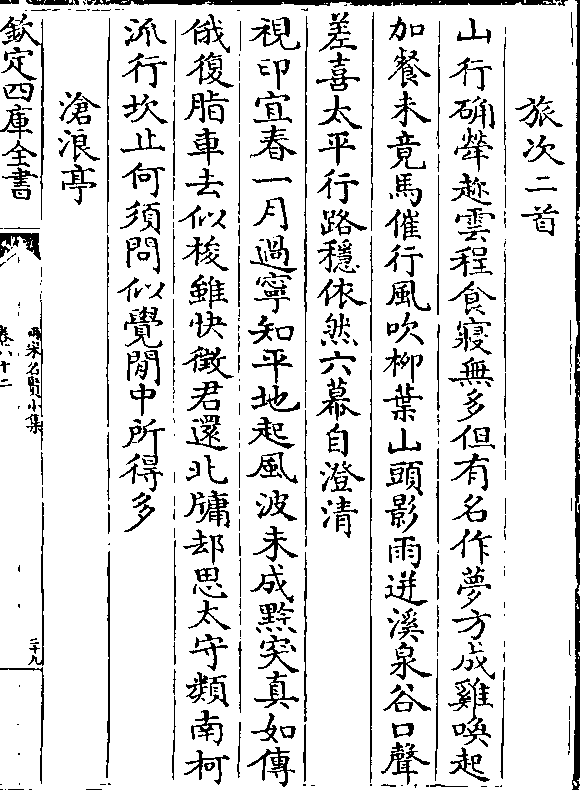 旅次二首
山行确犖趂雲程食寢無多但有名作夢方成雞喚起
加餐未竟馬催行風吹柳葉山頭影雨迸溪泉谷口聲
差喜太平行路穩依然六幕自澄清
視印宜春一月過寧知平地起風波未成黔突真如傳
俄復脂車去似梭雖快徵君還北牖却思太守類南柯
流行坎止何須問似覺閒中所得多
滄浪亭
欽定四庫全書
兩宋名賢小集
卷六十二
三十九